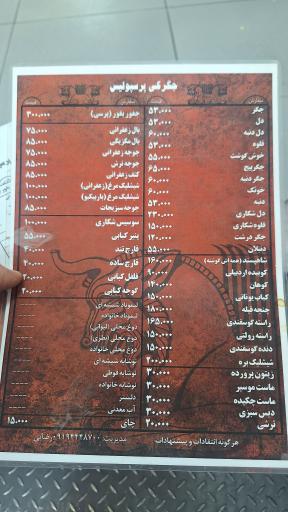 جگرکی پرسپولیس
جگر ۵۳.۰۰۰
دل ۵۳.۰۰۰
دل دنبه ۶۰.۰۰۰
قلوه ۵۳.۰۰۰
خوش گوشت ۵۵.۰۰۰
جگرپیچ ۶۵.۰۰۰
جگر دنبه ۶۰.۰۰۰
خونک ۶۰.۰۰۰
دنبه ۵۳.۰۰۰
دل شکاری ۲۳۰.۰۰۰
قلوه شکاری ۱۵۰.۰۰۰
جگر درشت ۱۲۰.۰۰۰
دنبلان ۵۵.۰۰۰
شاهپسند (همه اش گوشته) ۱۶۰.۰۰۰
کوبیده اردبیلی ۹۰.۰۰۰
کوهان ۱۲۰.۰۰۰
کباب یونانی ۱۵۰.۰۰۰
خنجه فیله ۱۸۰.۰۰۰
راسته گوسفندی ۱۶۵.۰۰۰
راسته رولتی ۱۵۰.۰۰۰
دنده گوسفندی ۱۵۰.۰۰۰
شیشلیک بره ۲۰۰.۰۰۰
زیتون پرورده ۳۰.۰۰۰
ماست موسیر ۳۰.۰۰۰
ماست چکیده ۳۰.۰۰۰
دبس سبزی ۳۰.۰۰۰
ترشی ۲۰.۰۰۰
جغور بغور (پرسی) ۳۰۰.۰۰۰
بال زعفرانی ۷۵.۰۰۰
بال مکزیکی ۸۵.۰۰۰
جوجه زعفرانی ۷۵.۰۰۰
جوجه ترش ۸۵.۰۰۰
کتف زعفرانی ۸۵.۰۰۰
شیشلیک مرغ (زعفرانی) ۱۰۰.۰۰۰
شیشلیک مرغ (باربیکیو) ۱۰۰.۰۰۰
جوجه سبزیجات ۸۵.۰۰۰
سوسیس شکاری ۱۰۰.۰۰۰
پنیر کبابی ۵۵.۰۰۰
قارچ تند
قارچ ساده ۲۰.۰۰۰
فلفل کبابی ۲۰.۰۰۰
گوجه کبابی ۲۰.۰۰۰
لیموناد شیشه ای
لیموناد خانواده
دوغ محلی (لیوانی)
دوغ محلی (بطری)
دوغ محلی خانواده
نوشابه شیشه ای
نوشابه قوطی
نوشابه خانواده
دلستر
آب معدنی
چای ۱۵.۰۰۰
هرگونه انتقادات و پیشنهادات
مدیریت: ۰۹۱۹۴۴۴۸۷۰۰ رضایی